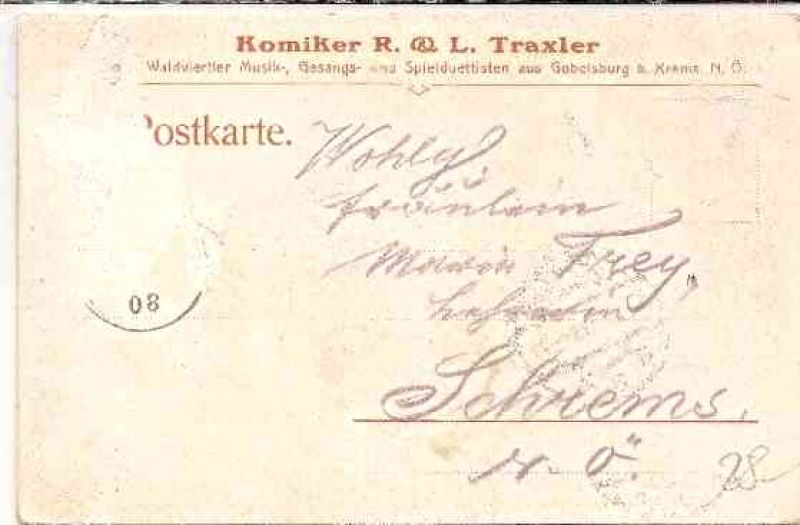 Komiker R. & L. Traxler
Waldviertler Musik-, Gesangs- und Spielduettisten aus Gobelsburg b. Krems N. Ö.
Postkarte.
Wohlg.
Fräulein
Marie Frey,
Lehrerin
Schrems,
N. Ö.
08
28